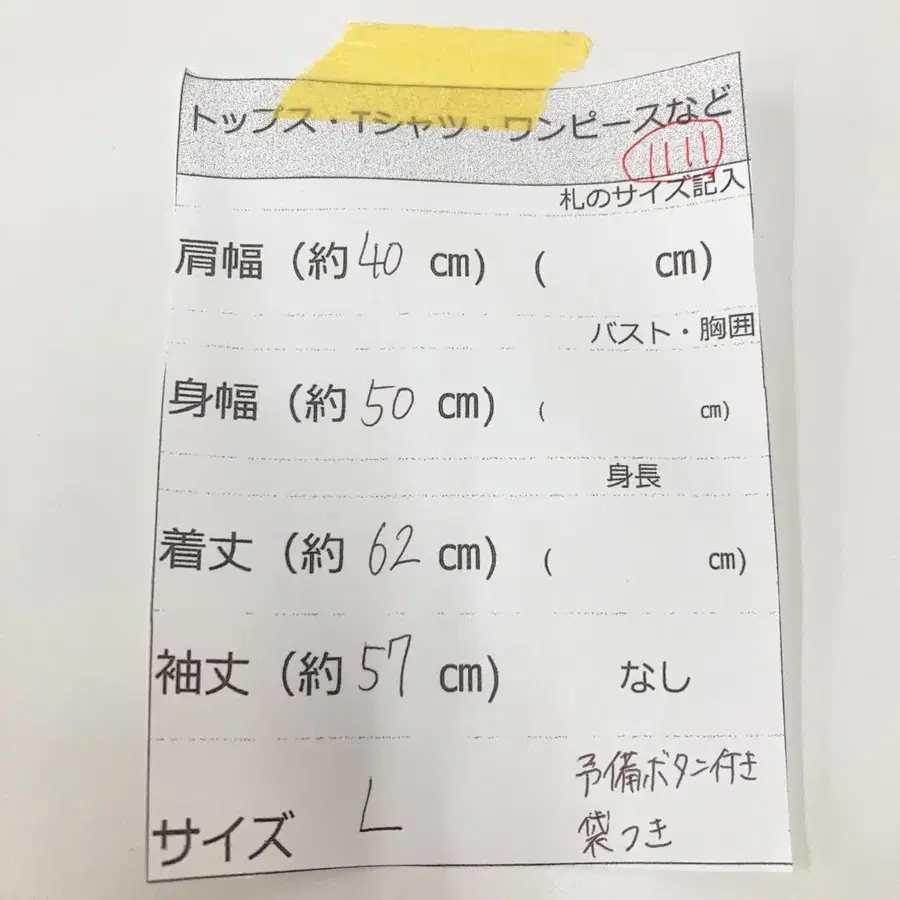 トップス・Tシャツ・ワンピースなど
1111
札のサイズ記入
肩幅 (約 40 cm) ( cm)
バスト・胸囲
身幅 (約 50 cm) ( cm)
身長
着丈 (約 62 cm) ( cm)
袖丈 (約 57 cm) なし
サイズ L
予備ボタン付き
袋つき